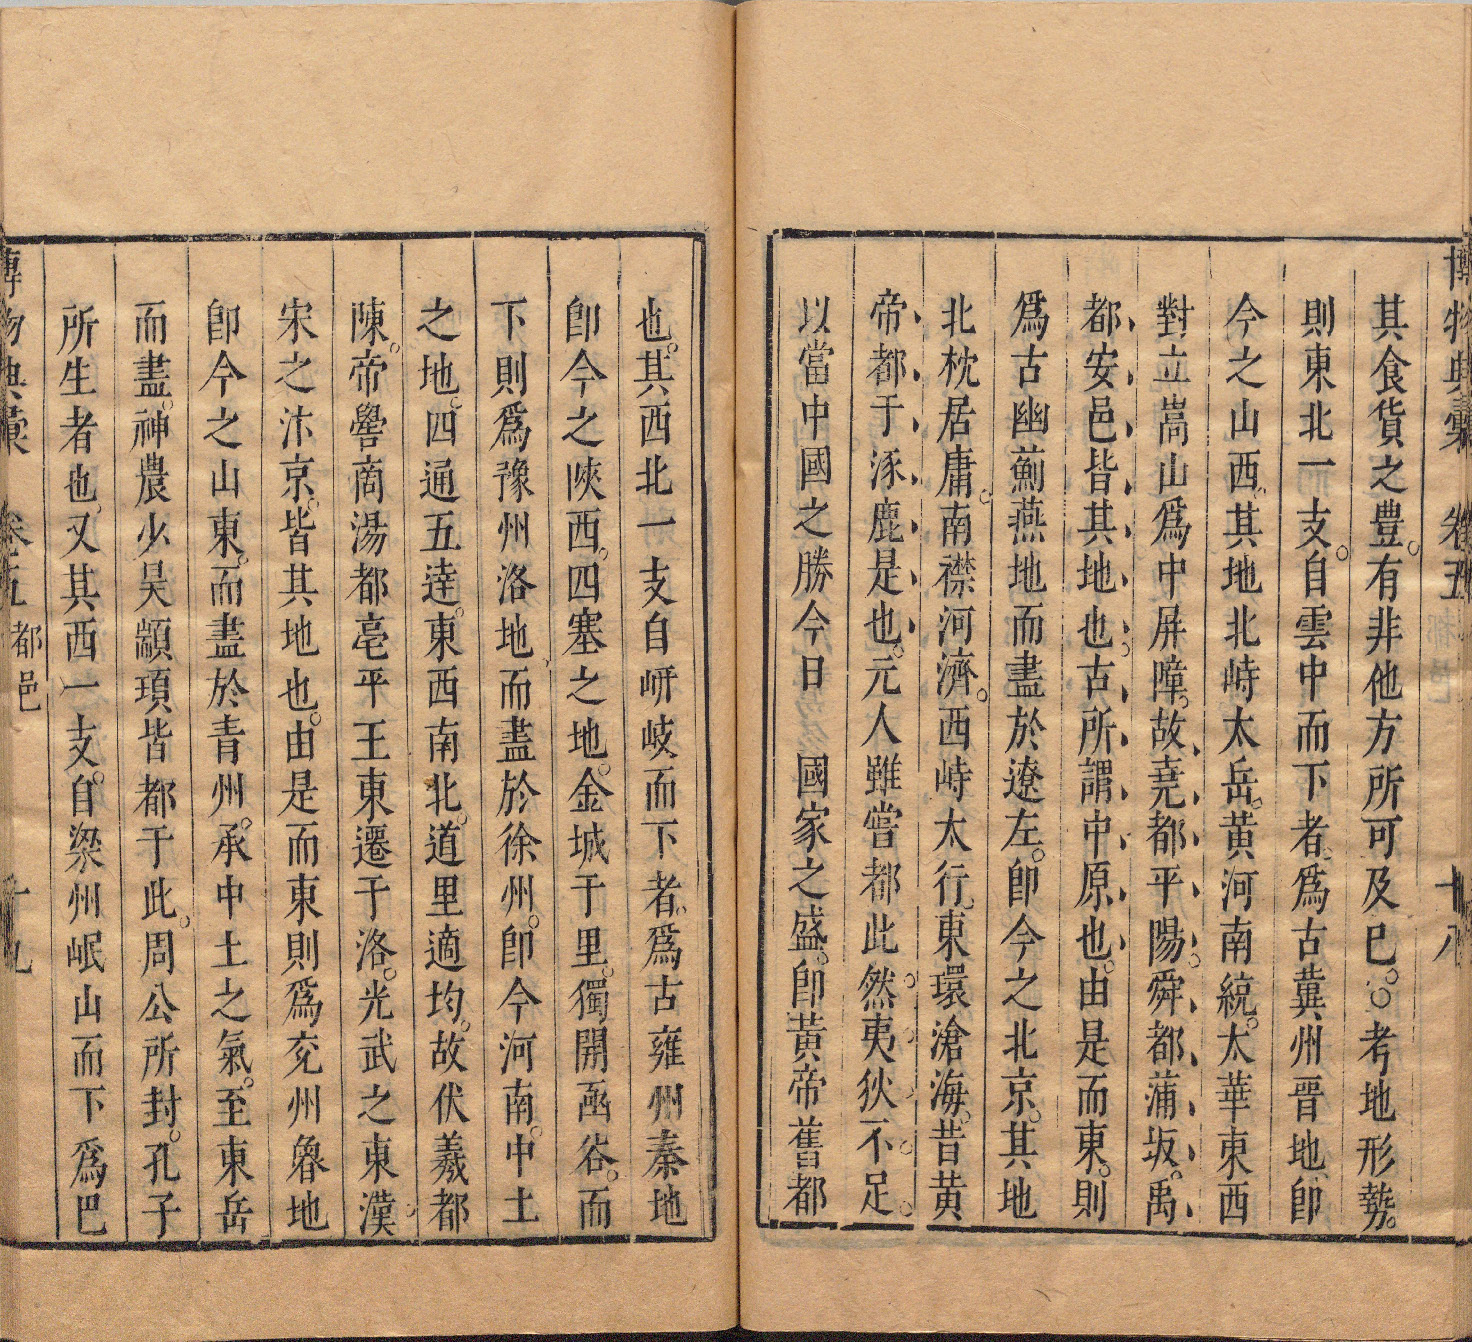 博物典彙 卷五 十八
其食貨之豊有非他方所可及巳○考地形勢
則東北一支自雲中而下者爲古冀州晉地卽
今之山西其地北峙太岳黃河南繞太華東西
對立嵩山爲中屏障故堯都平陽舜都蒲坂禹
都安邑皆其地也古所謂中原也由是而東則
爲古幽薊燕地而盡於遼左卽今之北京其地
北枕居庸南襟河濟西峙太行東環滄海昔黃
帝都于涿鹿是也元人雖嘗都此然夷狄不足
以當中國之勝今日 國家之盛卽黃帝舊都
也其西北一支自岍岐而下者爲古雍州秦地
卽今之陝西四塞之地金城千里獨開函谷而
下則爲豫州洛地而盡於徐州卽今河南中土
之地四通五達東西南北道里適均故伏羲都
陳帝嚳商湯都亳平王東遷于洛光武之東漢
宋之汴京皆其地也由是而東則爲兗州魯地
卽今之山東而盡於青州承中土之氣至東岳
而盡神農少昊顓頊皆都于此周公所封孔子
所生者也又其西一支自梁州岷山而下爲巴
博物典彙 卷五 都邑 十九